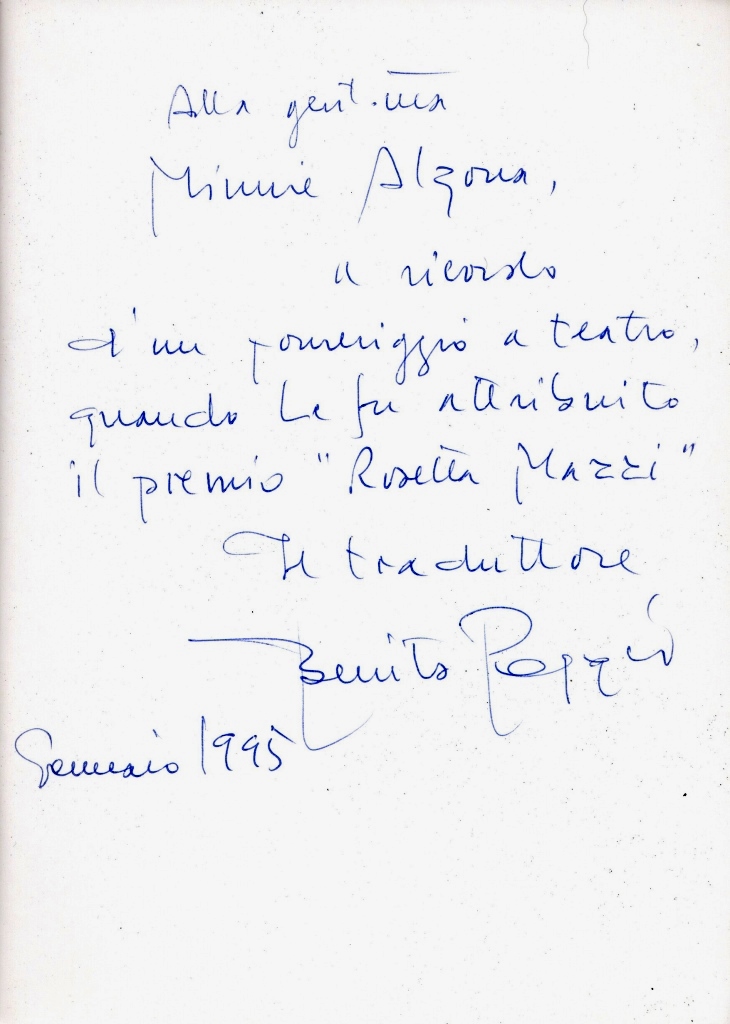 Alla gent.ma
Minnie Alzona,
a ricordo
d'un pomeriggio a teatro,
quando Le fu attribuito
il premio "Rosetta Mazzi"
Il traduttore
Benito
Gennaio 1995